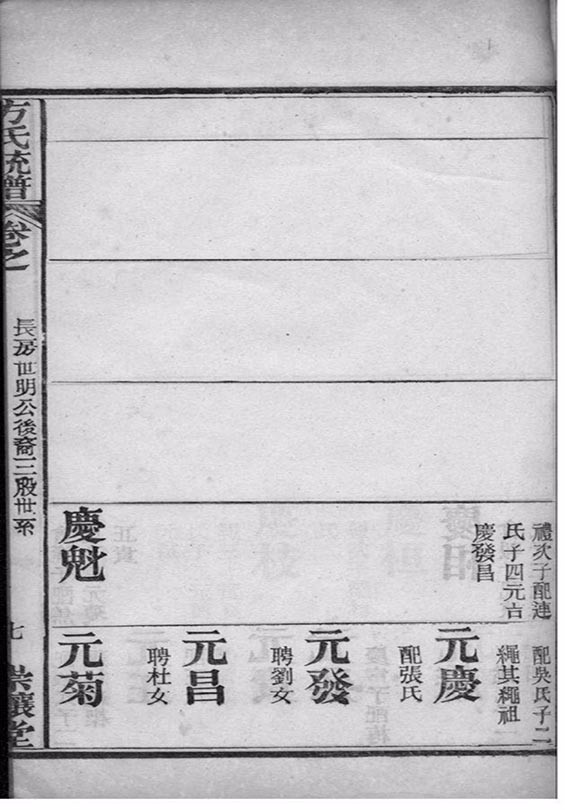 禮次子配連
氏子四元吉
慶發昌
慶魁
配吳氏子二
繩其繩祖
元慶
配張氏
元發
聘劉女
元昌
聘杜女
元菊
方氏統譜
卷之
長房世明公後裔三股世系
七
讓堂